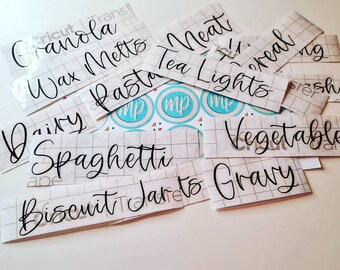 Granola
Meat
Wax Melts
Pasta
Cereal
Tea Lights
mp
mp
mp
Dairy
Vegetable
Spaghetti
Biscuit
Gravy